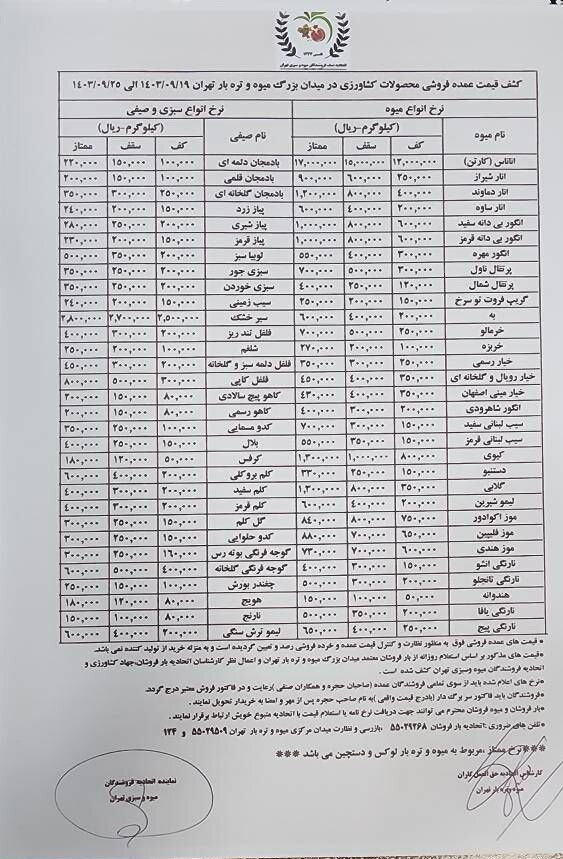 اتحادیه صنف فروشندگان میوه و سبزی تهران
کشف قیمت عمده فروشی محصولات کشاورزی در میدان بزرگ میوه و تره بار تهران ۱۴۰۳/۰۹/۱۹ الی ۱۴۰۳/۰۹/۲۵
نرخ انواع میوه نرخ انواع سبزی و صیفی
نام میوه (کیلوگرم-ریال) نام صیفی (کیلوگرم-ریال)
کف سقف ممتاز کف سقف ممتاز
آناناس (کارتن) ۱۲,۰۰۰,۰۰۰ ۱۵,۰۰۰,۰۰۰ ۱۷,۰۰۰,۰۰۰ بادمجان دلمه ای ۱۰۰,۰۰۰ ۱۵۰,۰۰۰ ۲۲۰,۰۰۰
انار شیراز ۲۵۰,۰۰۰ ۶۰۰,۰۰۰ ۹۰۰,۰۰۰ بادمجان قلمی ۱۰۰,۰۰۰ ۱۵۰,۰۰۰ ۲۰۰,۰۰۰
انار دماوند ۴۰۰,۰۰۰ ۸۰۰,۰۰۰ ۱,۲۰۰,۰۰۰ بادمجان گلخانه ای ۲۵۰,۰۰۰ ۳۰۰,۰۰۰ ۳۵۰,۰۰۰
انار ساوه ۲۰۰,۰۰۰ ۴۰۰,۰۰۰ ۶۰۰,۰۰۰ پیاز زرد ۱۵۰,۰۰۰ ۲۰۰,۰۰۰ ۲۴۰,۰۰۰
انگور بی دانه سفید ۶۰۰,۰۰۰ ۸۰۰,۰۰۰ ۱,۰۰۰,۰۰۰ پیاز شیری ۲۰۰,۰۰۰ ۲۵۰,۰۰۰ ۲۸۰,۰۰۰
انگور بی دانه قرمز ۶۰۰,۰۰۰ ۸۰۰,۰۰۰ ۱,۰۰۰,۰۰۰ پیاز قرمز ۱۵۰,۰۰۰ ۲۰۰,۰۰۰ ۲۳۰,۰۰۰
انگور مهره ۳۰۰,۰۰۰ ۴۰۰,۰۰۰ ۵۵۰,۰۰۰ لوبیا سبز ۲۰۰,۰۰۰ ۳۵۰,۰۰۰ ۵۰۰,۰۰۰
پرتقال ناول ۳۰۰,۰۰۰ ۵۰۰,۰۰۰ ۷۰۰,۰۰۰ سبزی جور ۲۰۰,۰۰۰ ۲۵۰,۰۰۰ ۳۵۰,۰۰۰
پرتقال شمال ۱۲۰,۰۰۰ ۲۵۰,۰۰۰ ۴۰۰,۰۰۰ سبزی خوردن ۲۰۰,۰۰۰ ۲۵۰,۰۰۰ ۳۵۰,۰۰۰
گریپ فروت تو سرخ ۱۵۰,۰۰۰ ۲۰۰,۰۰۰ ۲۵۰,۰۰۰ سیب زمینی ۱۵۰,۰۰۰ ۲۰۰,۰۰۰ ۲۴۰,۰۰۰
به ۲۰۰,۰۰۰ ۴۰۰,۰۰۰ ۶۰۰,۰۰۰ سیر خشک ۲,۵۰۰,۰۰۰ ۲,۷۰۰,۰۰۰ ۲,۸۰۰,۰۰۰
خرمالو ۲۵۰,۰۰۰ ۵۰۰,۰۰۰ ۷۰۰,۰۰۰ فلفل تند ریز ۲۰۰,۰۰۰ ۳۰۰,۰۰۰ ۴۰۰,۰۰۰
خربزه ۱۰۰,۰۰۰ ۲۰۰,۰۰۰ ۲۷۰,۰۰۰ شلغم ۱۰۰,۰۰۰ ۲۰۰,۰۰۰ ۲۵۰,۰۰۰
خیار رسمی ۲۵۰,۰۰۰ ۳۰۰,۰۰۰ ۳۵۰,۰۰۰ فلفل دلمه سبز و گلخانه ۲۰۰,۰۰۰ ۳۰۰,۰۰۰ ۴۵۰,۰۰۰
خیار رویال و گلخانه ای ۳۵۰,۰۰۰ ۴۰۰,۰۰۰ ۴۵۰,۰۰۰ فلفل کاپی ۳۰۰,۰۰۰ ۵۰۰,۰۰۰ ۸۰۰,۰۰۰
خیار مینی اصفهان ۳۵۰,۰۰۰ ۴۰۰,۰۰۰ ۴۳۰,۰۰۰ کاهو پیچ سالادی ۸۰,۰۰۰ ۱۵۰,۰۰۰ ۲۰۰,۰۰۰
انگور شاهرودی ۲۰۰,۰۰۰ ۳۰۰,۰۰۰ ۴۰۰,۰۰۰ کاهو رسمی ۸۰,۰۰۰ ۱۵۰,۰۰۰ ۲۰۰,۰۰۰
سیب لبنانی سفید ۱۵۰,۰۰۰ ۳۰۰,۰۰۰ ۷۰۰,۰۰۰ کدو مسمایی ۱۰۰,۰۰۰ ۲۵۰,۰۰۰ ۳۵۰,۰۰۰
سیب لبنانی قرمز ۱۵۰,۰۰۰ ۳۵۰,۰۰۰ ۵۵۰,۰۰۰ بلال ۱۵۰,۰۰۰ ۲۵۰,۰۰۰ ۴۰۰,۰۰۰
کیوی ۸۰۰,۰۰۰ ۱,۰۰۰,۰۰۰ ۱,۳۰۰,۰۰۰ کرفس ۵۰,۰۰۰ ۱۲۰,۰۰۰ ۱۸۰,۰۰۰
دستنبو ۱۵۰,۰۰۰ ۲۵۰,۰۰۰ ۳۳۰,۰۰۰ کلم بروکلی ۲۰۰,۰۰۰ ۴۰۰,۰۰۰ ۶۰۰,۰۰۰
گلابی ۳۵۰,۰۰۰ ۸۰۰,۰۰۰ ۱,۳۰۰,۰۰۰ کلم سفید ۲۰۰,۰۰۰ ۳۰۰,۰۰۰ ۴۰۰,۰۰۰
لیمو شیرین ۲۰۰,۰۰۰ ۴۰۰,۰۰۰ ۶۰۰,۰۰۰ کلم قرمز ۲۰۰,۰۰۰ ۳۰۰,۰۰۰ ۴۰۰,۰۰۰
موز اکوادور ۷۵۰,۰۰۰ ۸۰۰,۰۰۰ ۸۴۰,۰۰۰ گل کلم ۱۵۰,۰۰۰ ۲۵۰,۰۰۰ ۳۰۰,۰۰۰
موز فلیپین ۶۵۰,۰۰۰ ۷۰۰,۰۰۰ ۸۸۰,۰۰۰ کدو حلوایی ۱۵۰,۰۰۰ ۲۰۰,۰۰۰ ۳۰۰,۰۰۰
موز هندی ۶۰۰,۰۰۰ ۷۰۰,۰۰۰ ۷۳۰,۰۰۰ گوجه فرنگی بوته رس ۱۶۰,۰۰۰ ۲۵۰,۰۰۰ ۳۰۰,۰۰۰
نارنگی انشو ۱۵۰,۰۰۰ ۳۰۰,۰۰۰ ۴۰۰,۰۰۰ گوجه فرنگی گلخانه ۴۰۰,۰۰۰ ۵۰۰,۰۰۰ ۶۰۰,۰۰۰
نارنگی تانجلو ۲۰۰,۰۰۰ ۳۰۰,۰۰۰ ۵۰۰,۰۰۰ چغندر بورش ۱۰۰,۰۰۰ ۱۵۰,۰۰۰ ۲۵۰,۰۰۰
هندوانه ۵۰,۰۰۰ ۱۰۰,۰۰۰ ۱۵۰,۰۰۰ هویج ۸۰,۰۰۰ ۱۲۰,۰۰۰ ۱۸۰,۰۰۰
نارنگی یافا ۲۰۰,۰۰۰ ۳۵۰,۰۰۰ ۵۰۰,۰۰۰ نارنج ۸۰,۰۰۰ ۱۰۰,۰۰۰ ۱۵۰,۰۰۰
نارنگی پیج ۲۵۰,۰۰۰ ۴۰۰,۰۰۰ ۶۵۰,۰۰۰ لیمو ترش سنگی ۲۰۰,۰۰۰ ۴۰۰,۰۰۰ ۶۰۰,۰۰۰
* قیمت های عمده فروشی فوق به منظور نظارت و کنترل قیمت عمده و خرده فروشی رصد و تعیین گردیده است و به منزله خرید از تولید کننده نمی باشد.
*قیمت های مذکور بر اساس استعلام روزانه از بار فروشان معتمد میدان بزرگ میوه و تره بار تهران و اعمال نظر کارشناسان اتحادیه بار فروشان،جهاد کشاورزی و
اتحادیه فروشندگان میوه وسبزی تهران کشف شده است .
*نرخ های اعلام شده باید از سوی تمامی فروشندگان عمده (صاحبان حجره و همکاران صنفی )رعایت و در فاکتور فروش معتبر درج گردد.
*فروشندگان باید فاکتور سر برگ دار (بادرج قیمت واقعی )به نام صاحب حجره پس از مهر و امضا به خریدار تحویل نمایند .
*بار فروشان و میوه فروشان محترم می توانند جهت دریافت نرخ نامه یا استعلام قیمت با اتحادیه متبوع خویش ارتباط برقرار نمایند .
*تلفن های ضروری :اتحادیه بار فروشان ۵۵۰۲۹۲۶۸ ،بازرسی و نظارت میدان مرکزی میوه و تره بار تهران ۵۵۰۲۹۵۰۹ و ۱۲۴
***نرخ ممتاز ،مربوط به میوه و تره بار لوکس و دستچین می باشد ***
کارشناس اتحادیه حق العمل کاران
میوه و تره بار تهران
نماینده اتحادیه فروشندگان
میوه و سبزی تهران